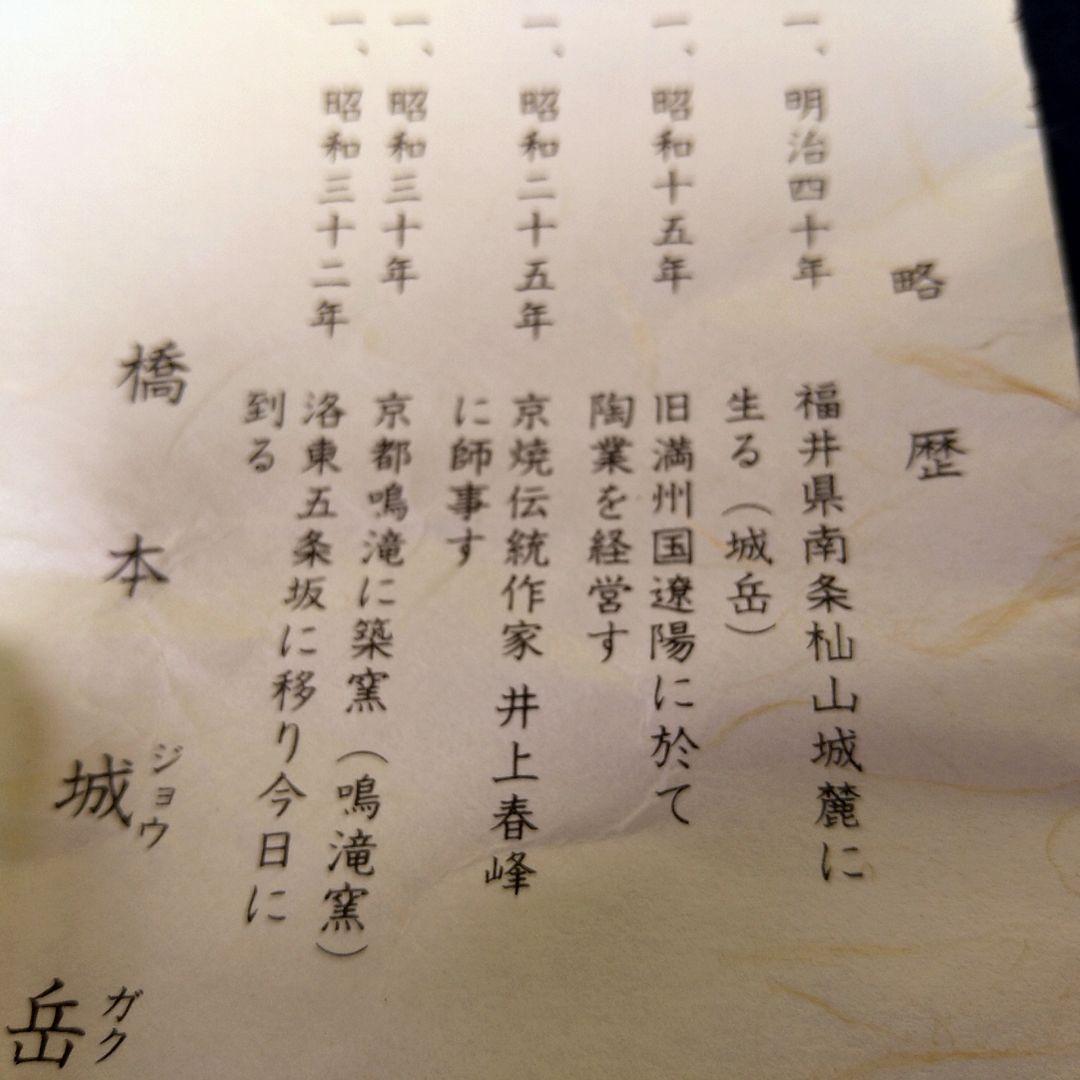 略歴
一、明治四十年 福井県南条杣山城麓に
生る（城岳）
一、昭和十五年 旧満州国遼陽に於て
陶業を経営す
一、昭和二十五年 京焼伝統作家 井上春峰
に師事す
一、昭和三十年 京都鳴滝に築窯（鳴滝窯）
一、昭和三十二年 洛東五条坂に移り今日に
到る
橋本城岳
ジョウガク